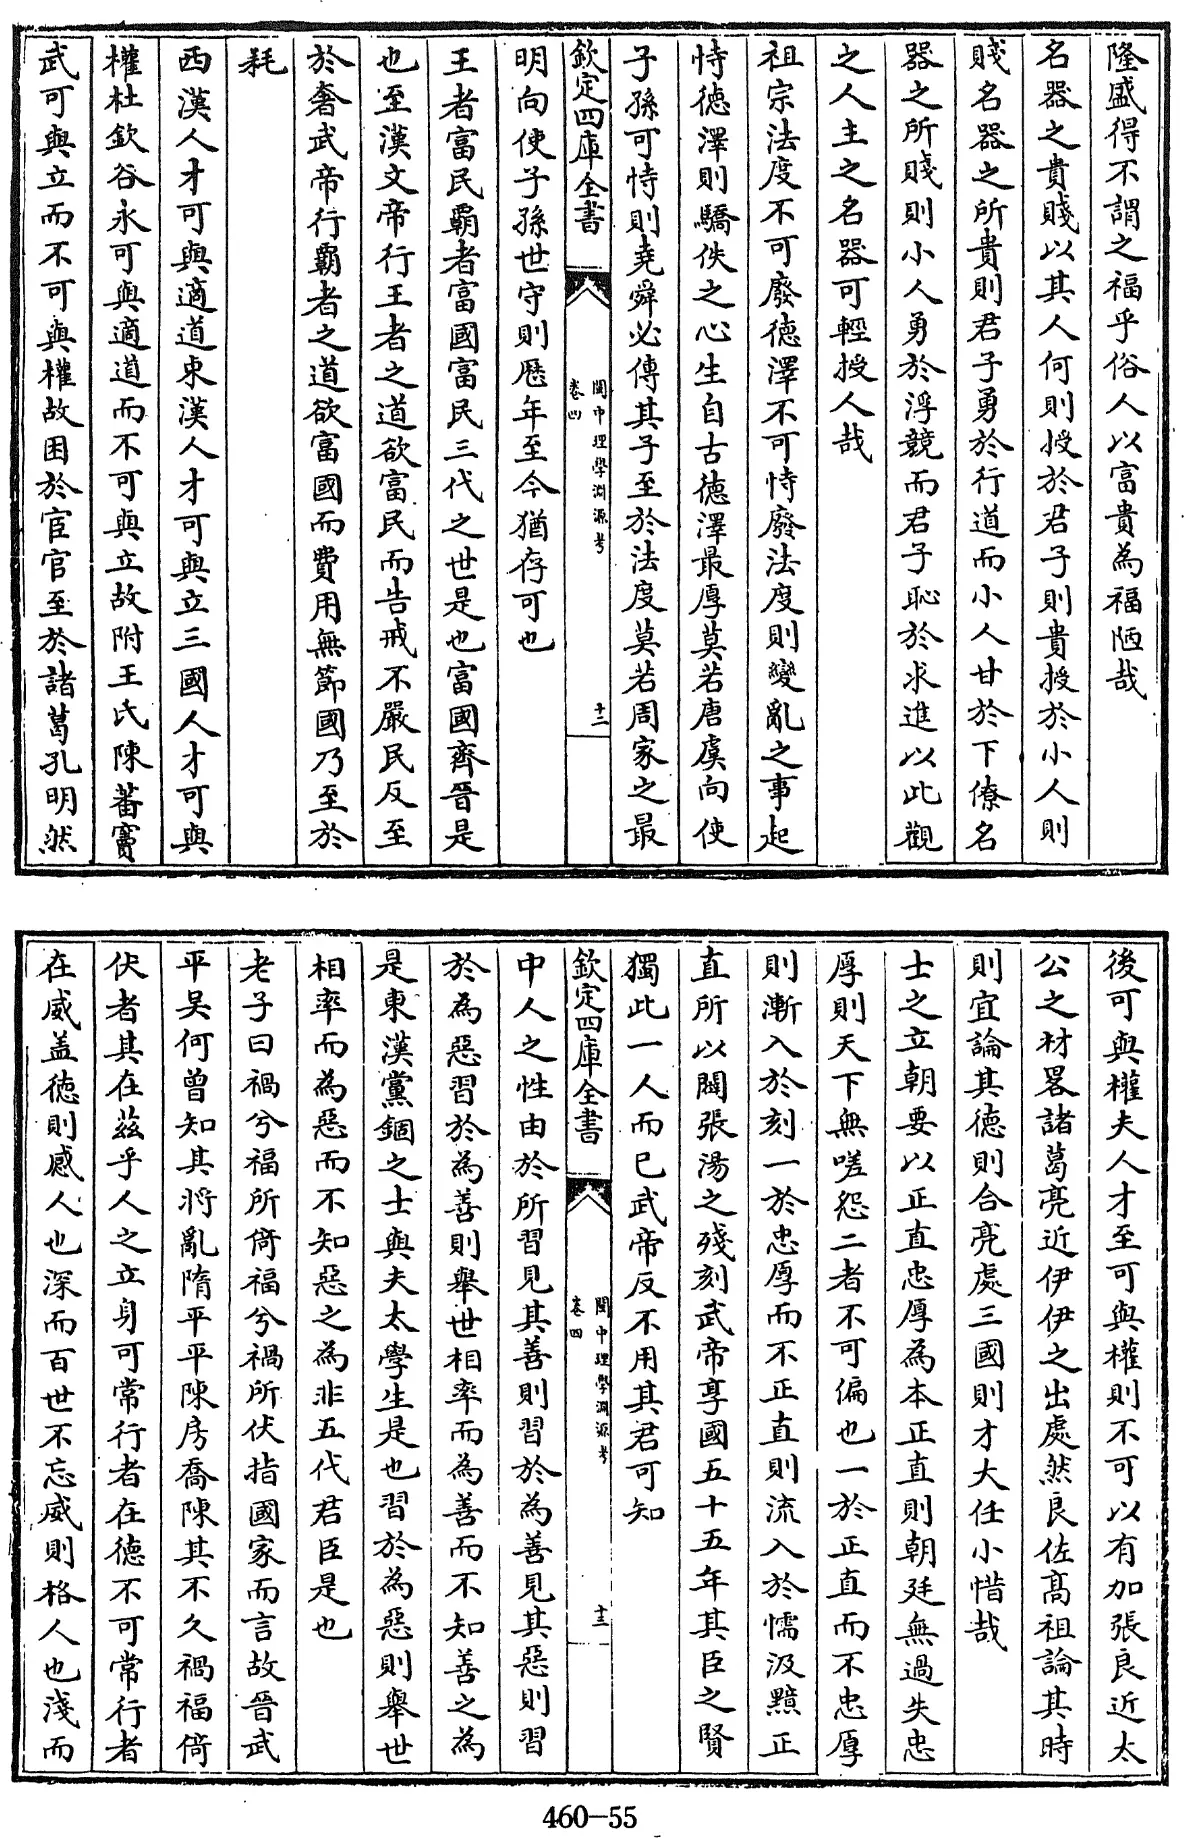 隆盛得不謂之福乎俗人以富貴為福陋哉
名器之貴賤以其人何則授於君子則貴授於小人則
賤名器之所貴則君子勇於行道而小人甘於下僚名
器之所賤則小人勇於浮競而君子恥於求進以此觀
之人主之名器可輕授人哉
祖宗法度不可廢德澤不可恃廢法度則變亂之事起
恃德澤則驕佚之心生自古德澤最厚莫若唐虞向使
子孫可恃則堯舜必傳其子至於法度莫若周家之最
欽定四庫全書
閩中理學淵源考
卷四
十二
明向使子孫世守則歷年至今猶存可也
王者富民霸者富國富民三代之世是也富國齊晉是
也至漢文帝行王者之道欲富民而告戒不嚴民反至
於奢武帝行霸者之道欲富國而費用無節國乃至於
耗
西漢人才可與適道東漢人才可與立三國人才可與
權杜欽谷永可與適道而不可與立故附王氏陳蕃竇
武可與立而不可與權故困於宦官至於諸葛孔明然
後可與權夫人才至可與權則不可以有加張良近太
公之材畧諸葛亮近伊伊之出處然良佐高祖論其時
則宜論其德則合亮處三國則才大任小惜哉
士之立朝要以正直忠厚為本正直則朝廷無過失忠
厚則天下無嗟怨二者不可偏也一於正直而不忠厚
則漸入於刻一於忠厚而不正直則流入於懦汲黯正
直所以闢張湯之殘刻武帝享國五十五年其臣之賢
獨此一人而已武帝反不用其君可知
欽定四庫全書
閩中理學淵源考
卷四
十三
中人之性由於所習見其善則習於為善見其惡則習
於為惡習於為善則舉世相率而為善而不知善之為
是東漢黨錮之士與夫太學生是也習於為惡則舉世
相率而為惡而不知惡之為非五代君臣是也
老子曰禍兮福所倚福兮禍所伏指國家而言故晉武
平吳何曾知其將亂隋平平陳房喬陳其不久禍福倚
伏者其在茲乎人之立身可常行者在德不可常行者
在威蓋德則感人也深而百世不忘威則格人也淺而
460-55